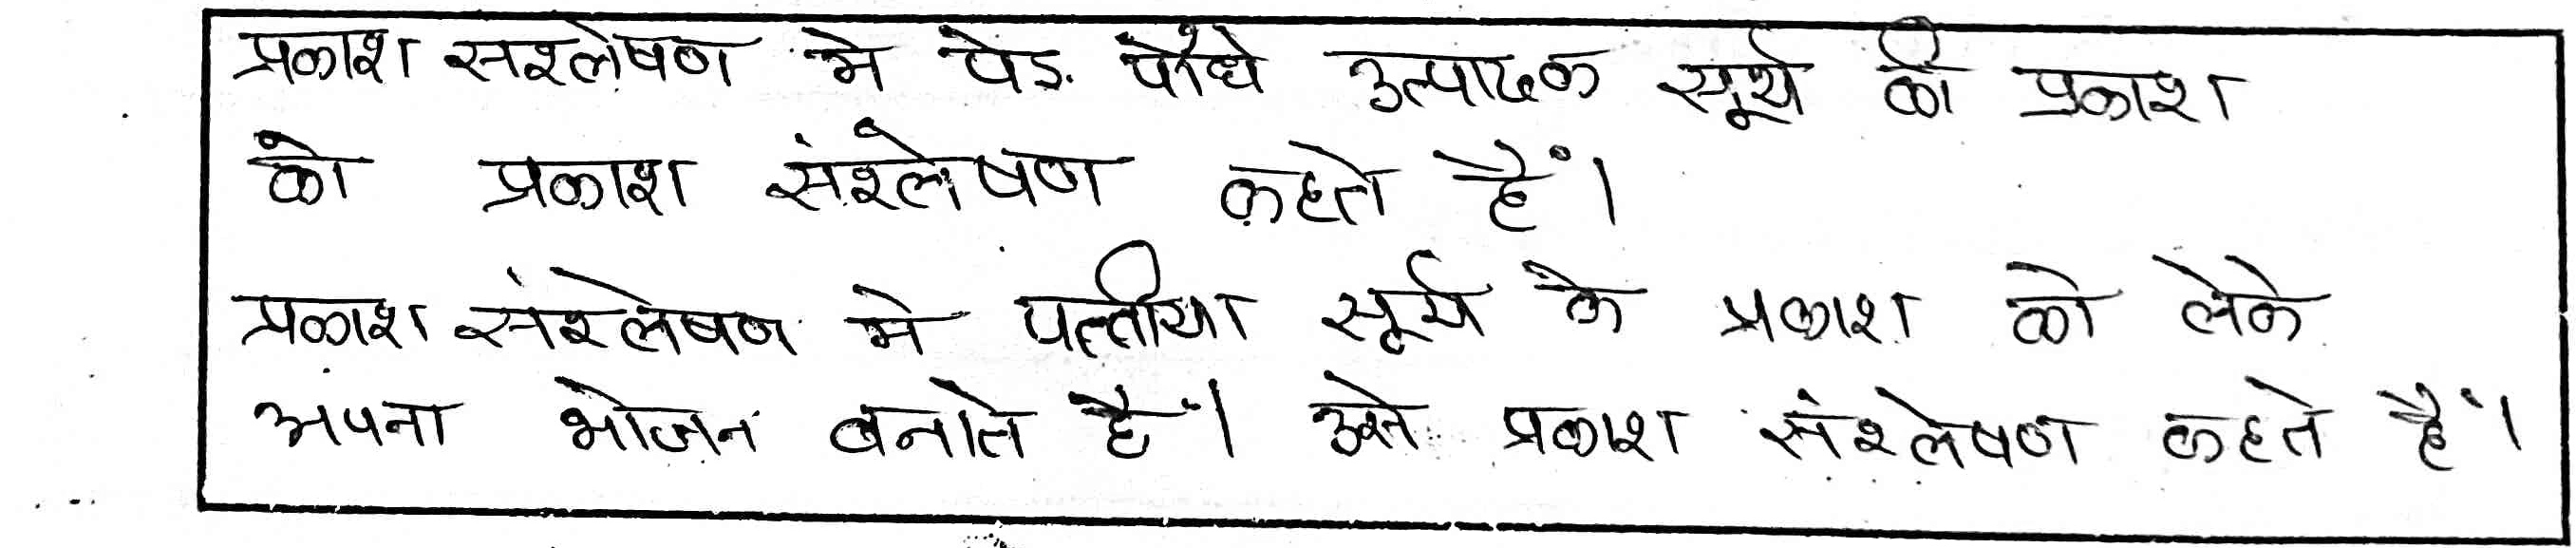 प्रकाश सश्लेषण मे पेड़ पौधे उत्पादक सूर्य की प्रकाश
को प्रकाश संश्लेषण कहते हैं।
प्रकाश संश्लेषण मे पत्तीया सूर्य के प्रकाश को लेके
अपना भोजन बनाते हैं। उसे प्रकाश संश्लेषण कहते हैं।